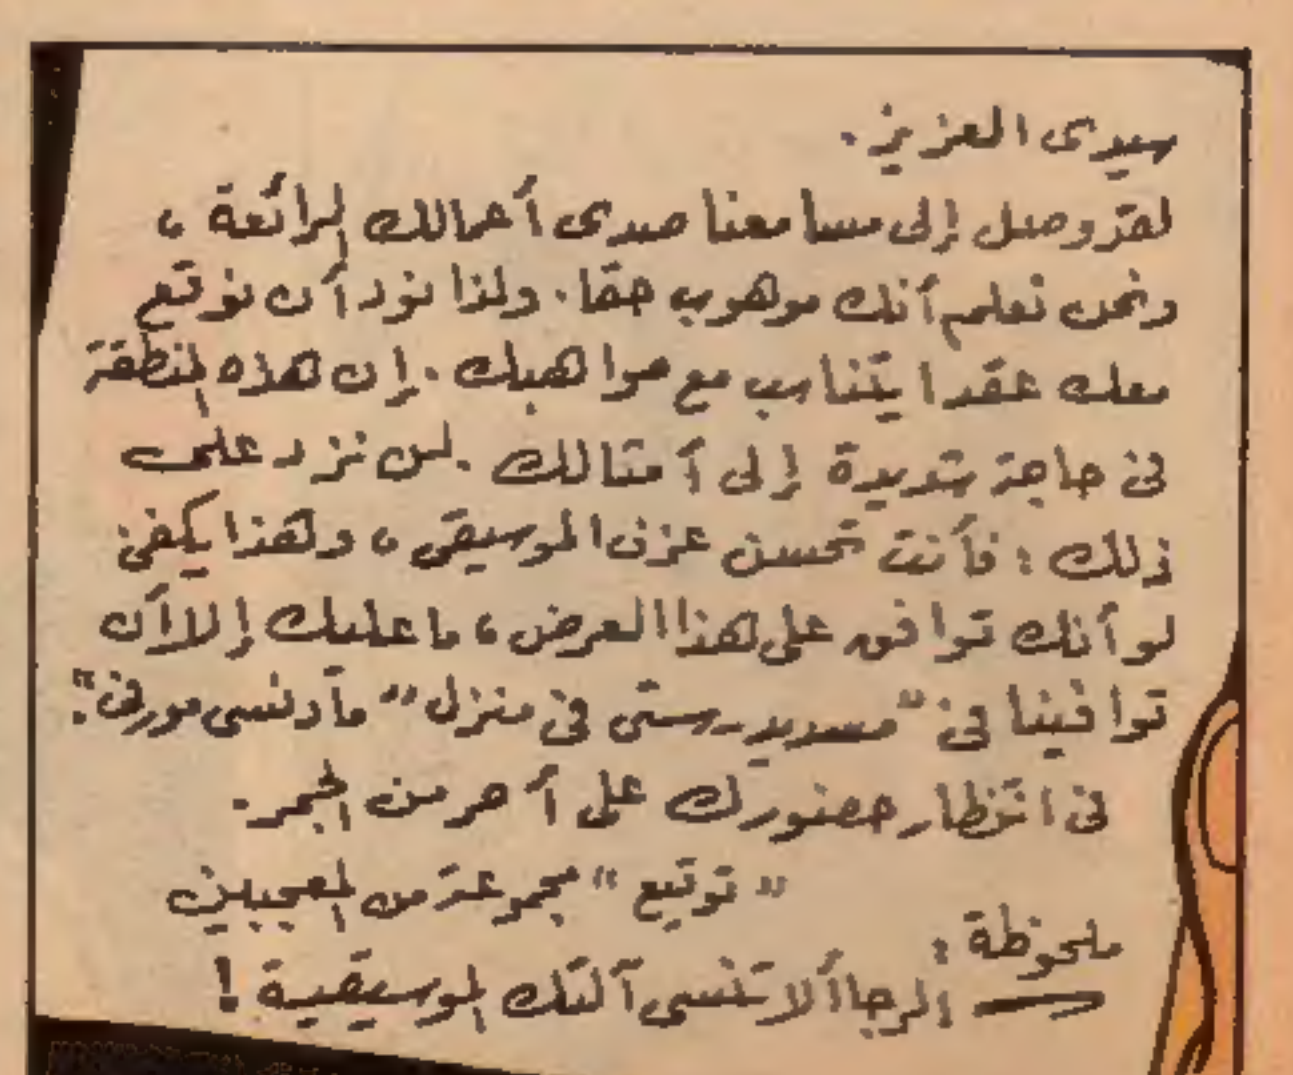 سيدى العزيز.
لقد وصل إلى مسامعنا صدى أعمالك الرائعة ،
ونحن نعلم أنك موهوب حقا . ولذا نود أن نوقع
معك عقدا يتناسب مع مواهبك . إن هذه المنطقة
فى حاجة شديدة إلى أمثالك . لن نزد على
ذلك : فأنت تحسن عزف الموسيقى ، وهذا يكفى
لو أنك توافق على هذا العرض ، ما عليك إلا أن
توافينا فى " مسديد-ستى فى منزل " مادنسى مورفى " .
فى انتظار حضورك على أحر من الجمر .
" توقيع " مجموعة من المعجبين
ملحوظة :
الرجا ألا تنسى آلتك الموسيقية !